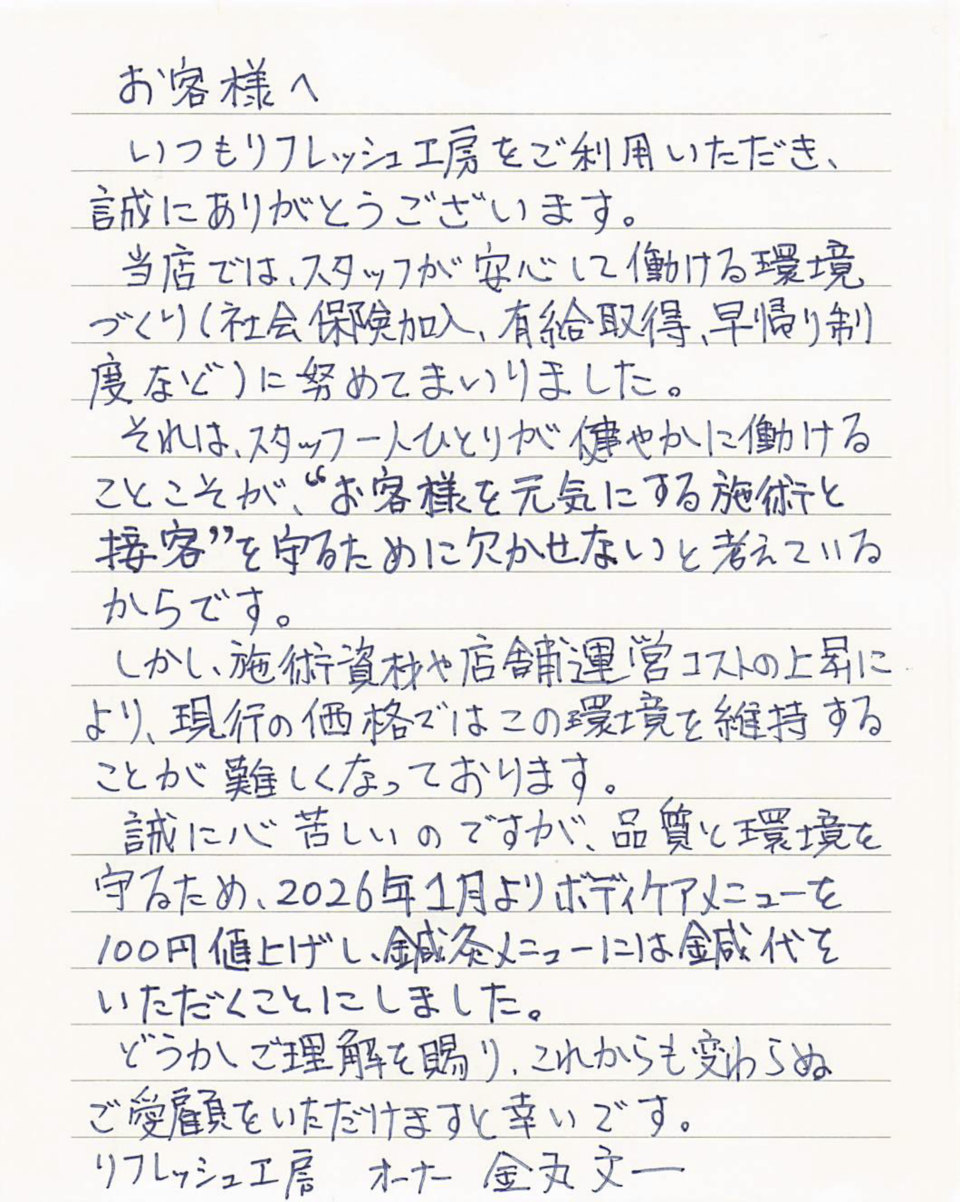 お客様へ
いつもリフレッシュ工房をご利用いただき、
誠にありがとうございます。
当店では、スタッフが安心して働ける環境
づくり(社会保険加入、有給取得、早帰り制
度など)に努めてまいりました。
それは、スタッフ一人ひとりが健やかに働ける
ことこそが、“お客様を元気にする施術と
接客”を守るために欠かせないと考えている
からです。
しかし、施術資材や店舗運営コストの上昇に
より、現行の価格ではこの環境を維持する
ことが難しくなっております。
誠に心苦しいのですが、品質と環境を
守るため、2026年1月よりボディケアメニューを
100円値上げし、鍼灸メニューには鍼代を
いただくことにしました。
どうかご理解を賜り、これからも変わらぬ
ご愛顧をいただけますと幸いです。
リフレッシュ工房 オーナー 金丸文一